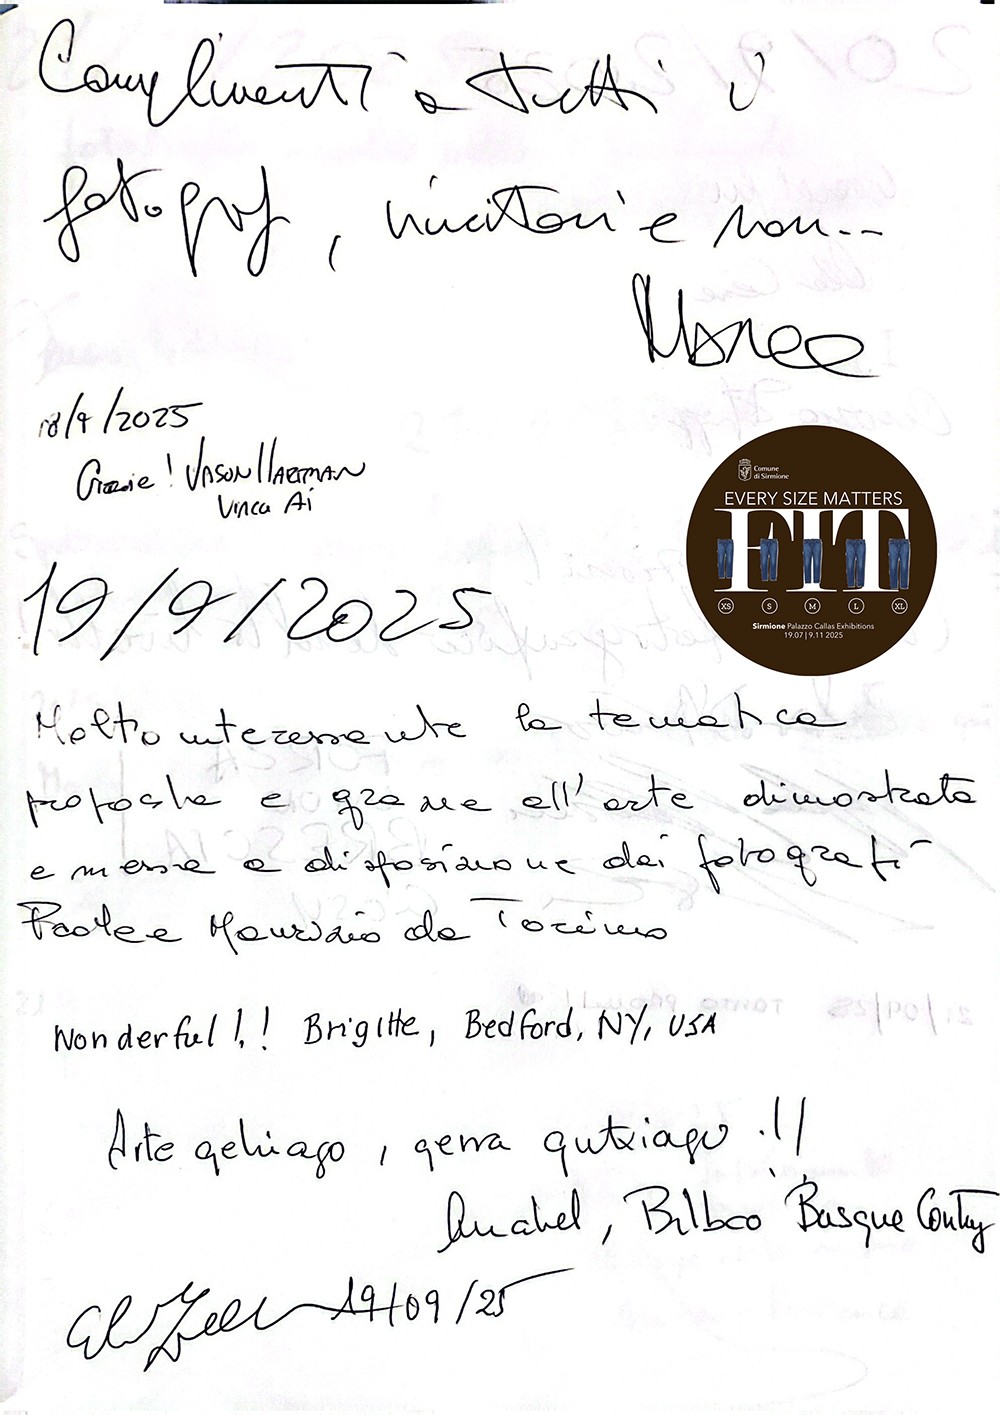 Complimenti a tutti i
fotografi, vincitori e non...
18/9/2025
Grazie! JASON HARTMAN
Vinca Ai
Comune
di Sirmione
EVERY SIZE MATTERS
FIT
XS S M L XL
Sirmione Palazzo Callas Exhibitions
19.07 | 9.11 2025
19/9/2025
Molto interessante la tematica
proposta e grazie all'arte dimostrata
e messa a disposizione dei fotografi
Paola e Maurizio da Torino
Wonderful!! Brigitte, Bedford, NY, USA
Arte gehiago, gerra gutxiago !!!
Anabel, Bilbao Basque Contry
19/09/25